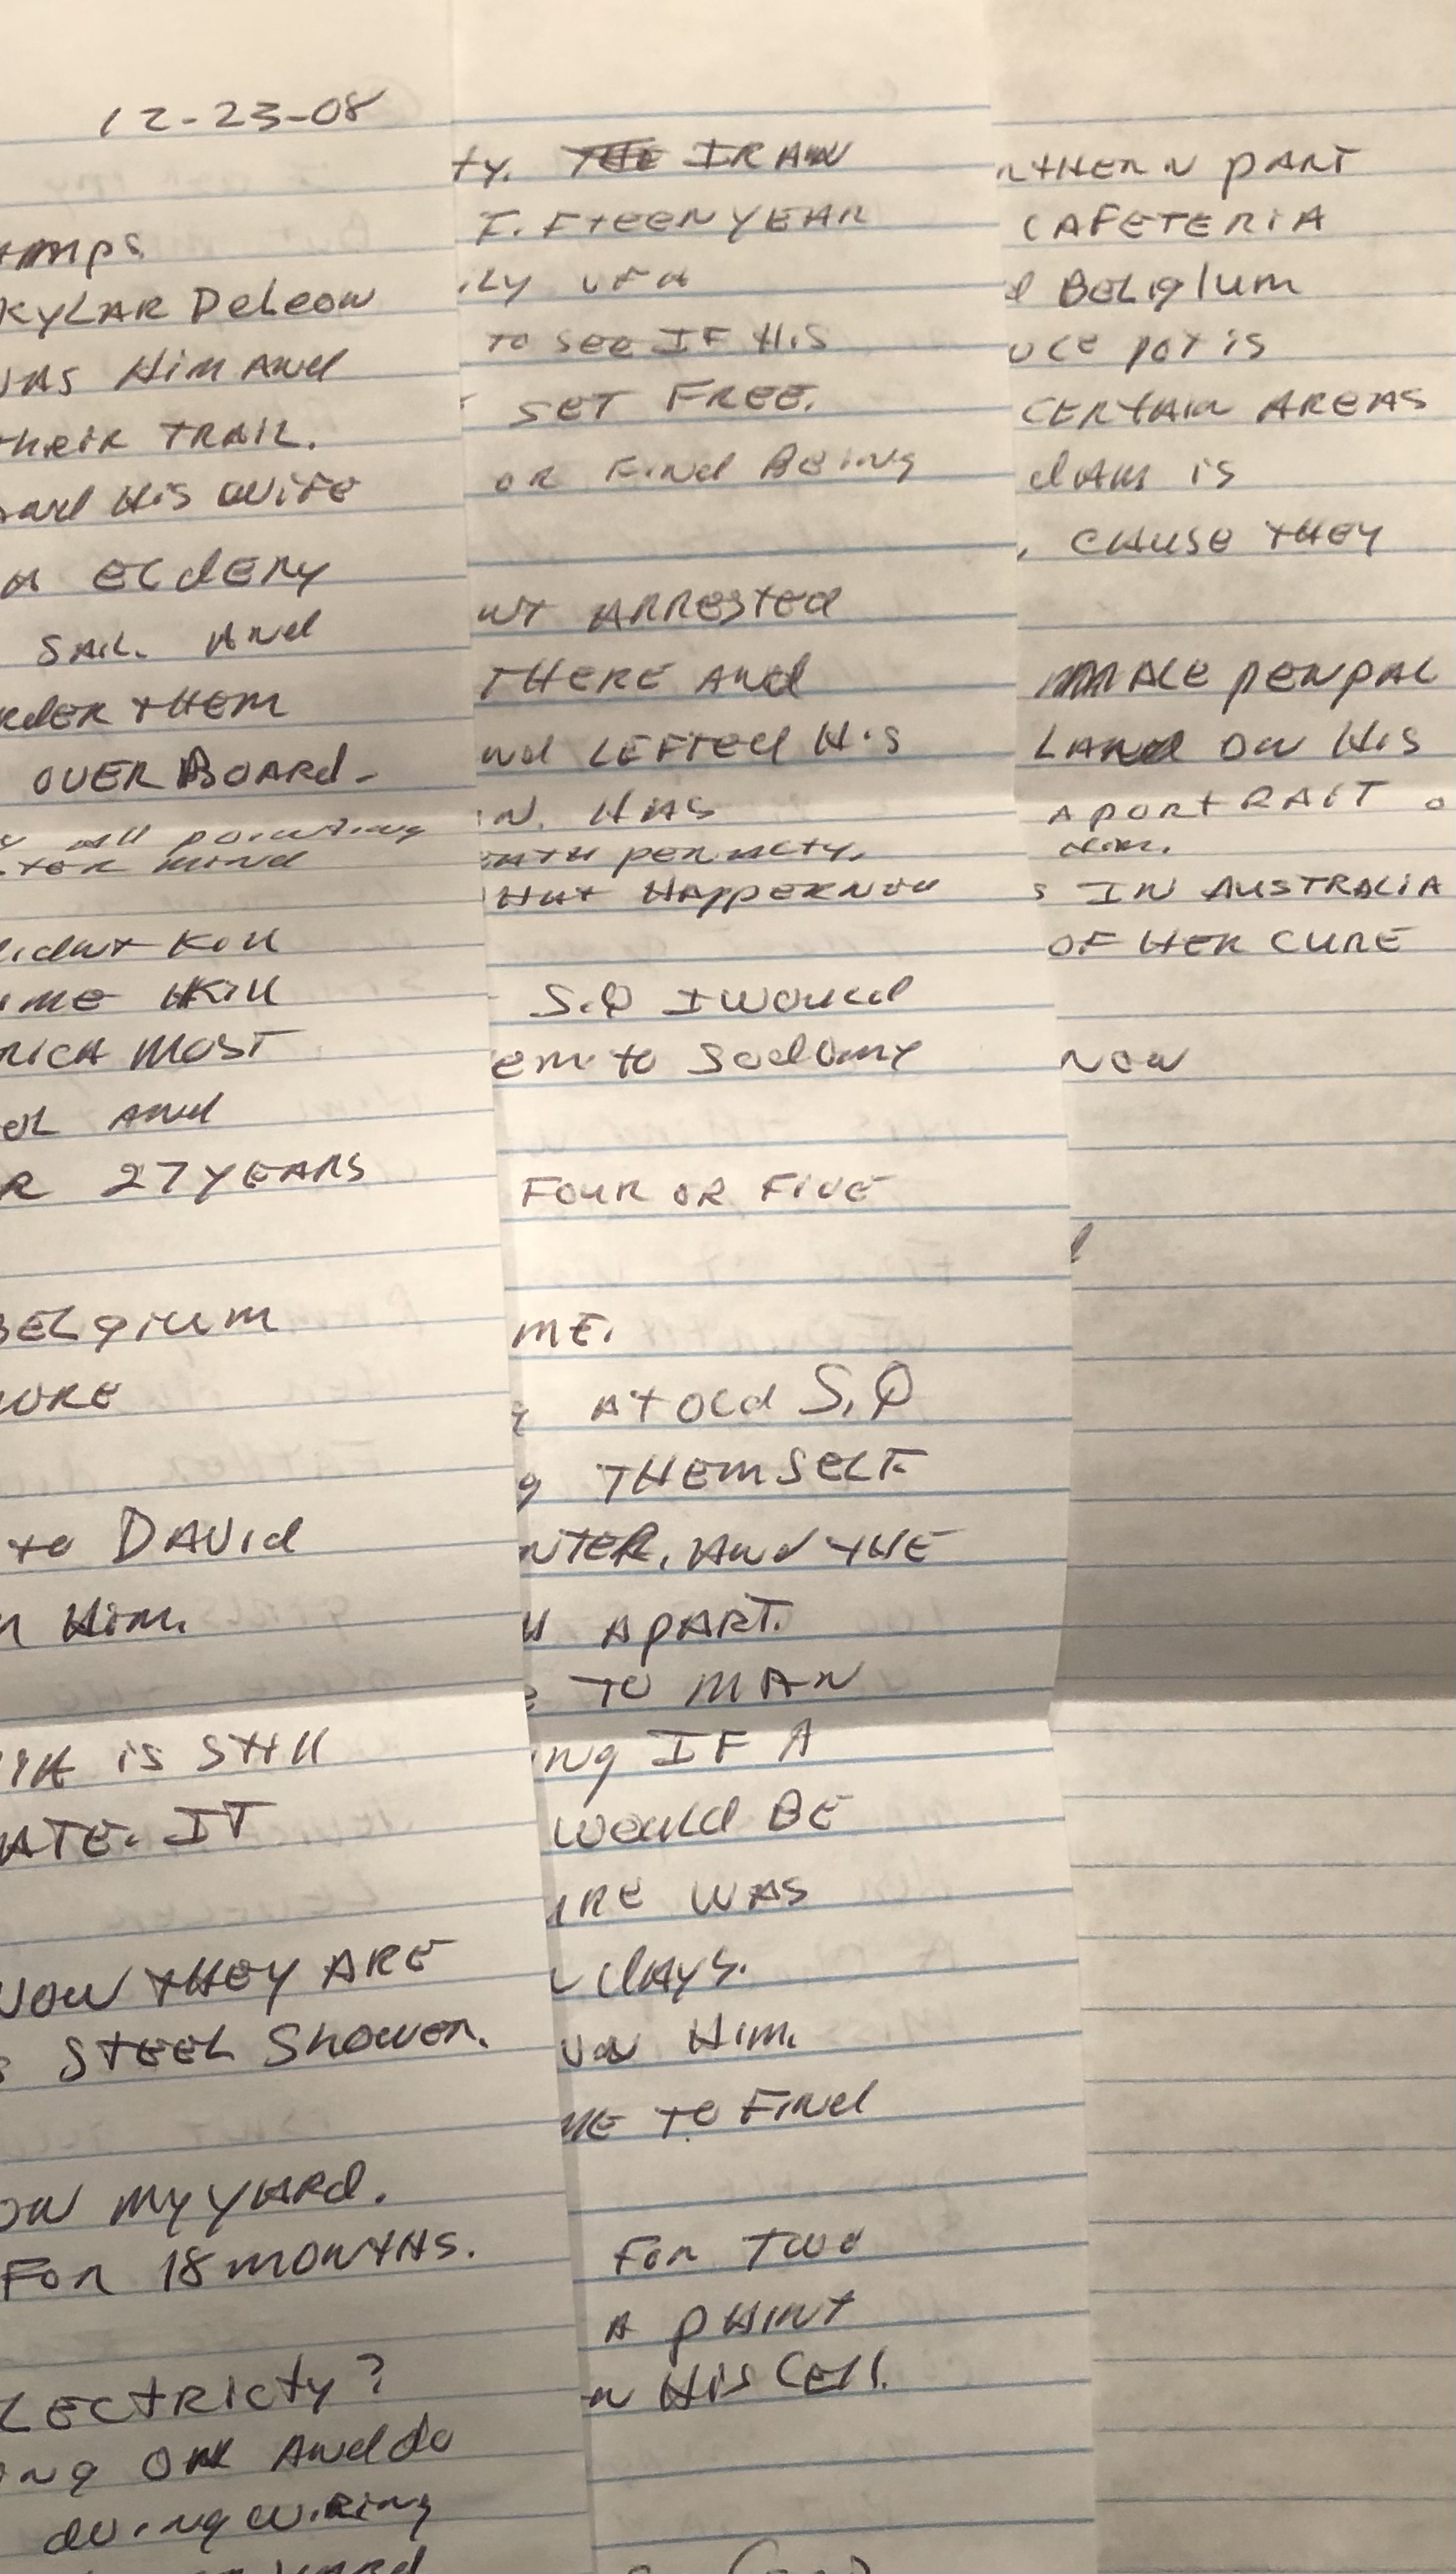 12-23-08
KYLAR DeLeon
Him And
their TRAIL.
His wife
ELDERY
SAIL. And
THEM
OVER BOARD.
all pointing
mind
didnt Kill
Kill
RICH MOST
And
27 YEARS
BELgium
to DAVid
Him.
is still
IT
NOW THEY ARE
STEEL Shower.
ON MY YARD.
FOR 18 MONTHS.
LECTRICTY?
And do
doing wiring
ty. THE IRAN
FIFTEEN YEAR
TO SEE IF HIS
SET FREE.
OR Find Being
ARRESTED
THERE And
LEFTED HIS
IN. HAS
PENALTY.
HAPPEN
S.Q I WOULD
to Sodomy
FOUR OR FIVE
ME.
AT OLD S.Q
THEMSELF
NTER. And THE
APART.
TO MAN
ng IF A
WOULD BE
IRE WAS
days.
Him.
TO Find
For TWO
A PAINT
HIS CELL.
RTHERN PART
CAFETERIA
BELgium
POT is
CERTAIN AREAS
dAM is
, CAUSE THEY
MALE PENPAL
LAND ON HIS
A PORTRAIT
him.
s IN AUSTRALIA
OF HER CURE
NOW